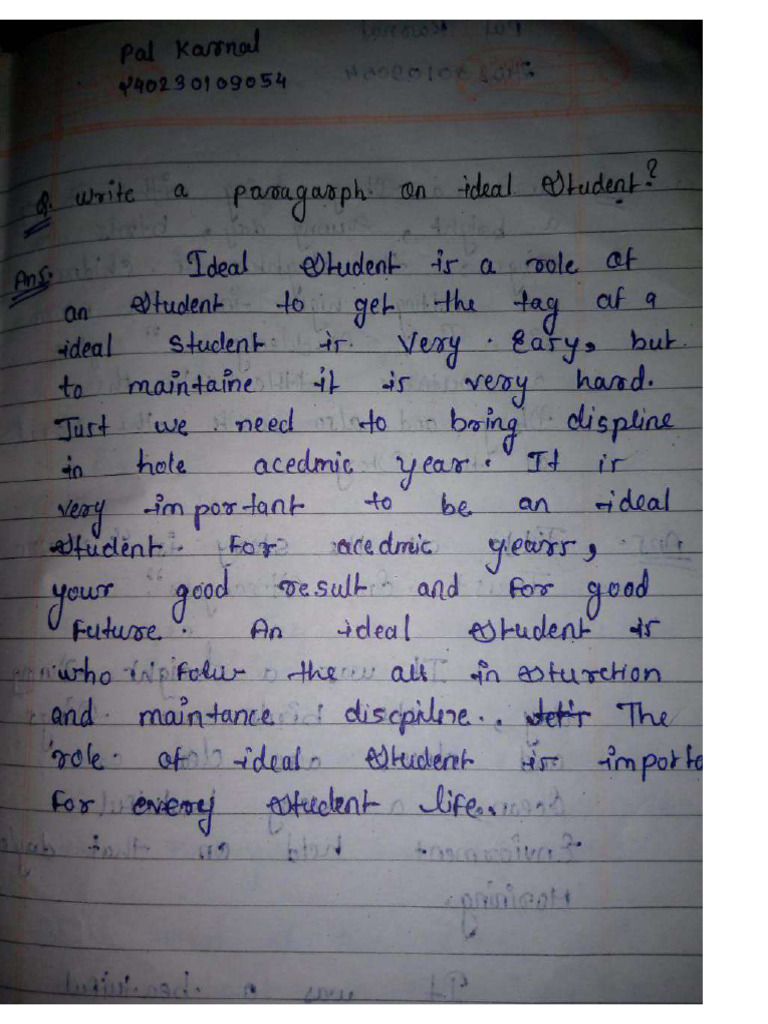 Pal Karnal
240230109054
Q. Write a paragarph on ideal Student?
Ans. Ideal Student is a role of
an Student to get the tag of a
ideal Student is very Easy, but
to maintaine it is very hard.
Just we need to bring displine
in hole acedmic year. It is
very important to be an ideal
Student. For acedmic years,
your good result and for good
Future. An ideal Student is
who folw the all in sturction
and maintance discpiline. The
role of ideal Student is importa
For every Student life.